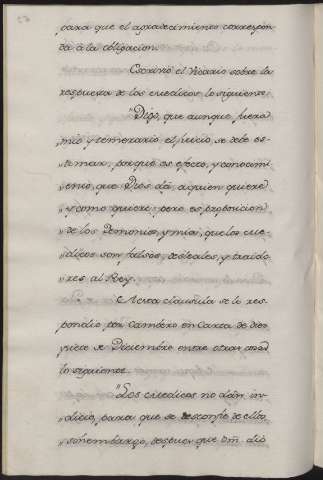 para que el agradecimiento correspon
da à la obligacion.
Escrivio el Vicario sobre la
respuesta de los cuedicos lo siguiente
"Digo, que aunque fuera
"mio y temerario el juicio, se debe es-
"timar, porque es efecto, y conocim
"iento, que Dios dà, aquien quiere
"y como quiere: pero es proposicion
"de los Demonios, y mia, que los cue-
"dicos son falsos, desleales, y traido
"res al Rey.
A esta clausula se le res
pondio por Cambero en Carta de diez
y siete de Diciembre entre otras cosas
lo siguiente.
"Los cuedicos no dàn in-
"dicio, para que se desconfie de ellos,
"sinembargo, despues que Vm. dió